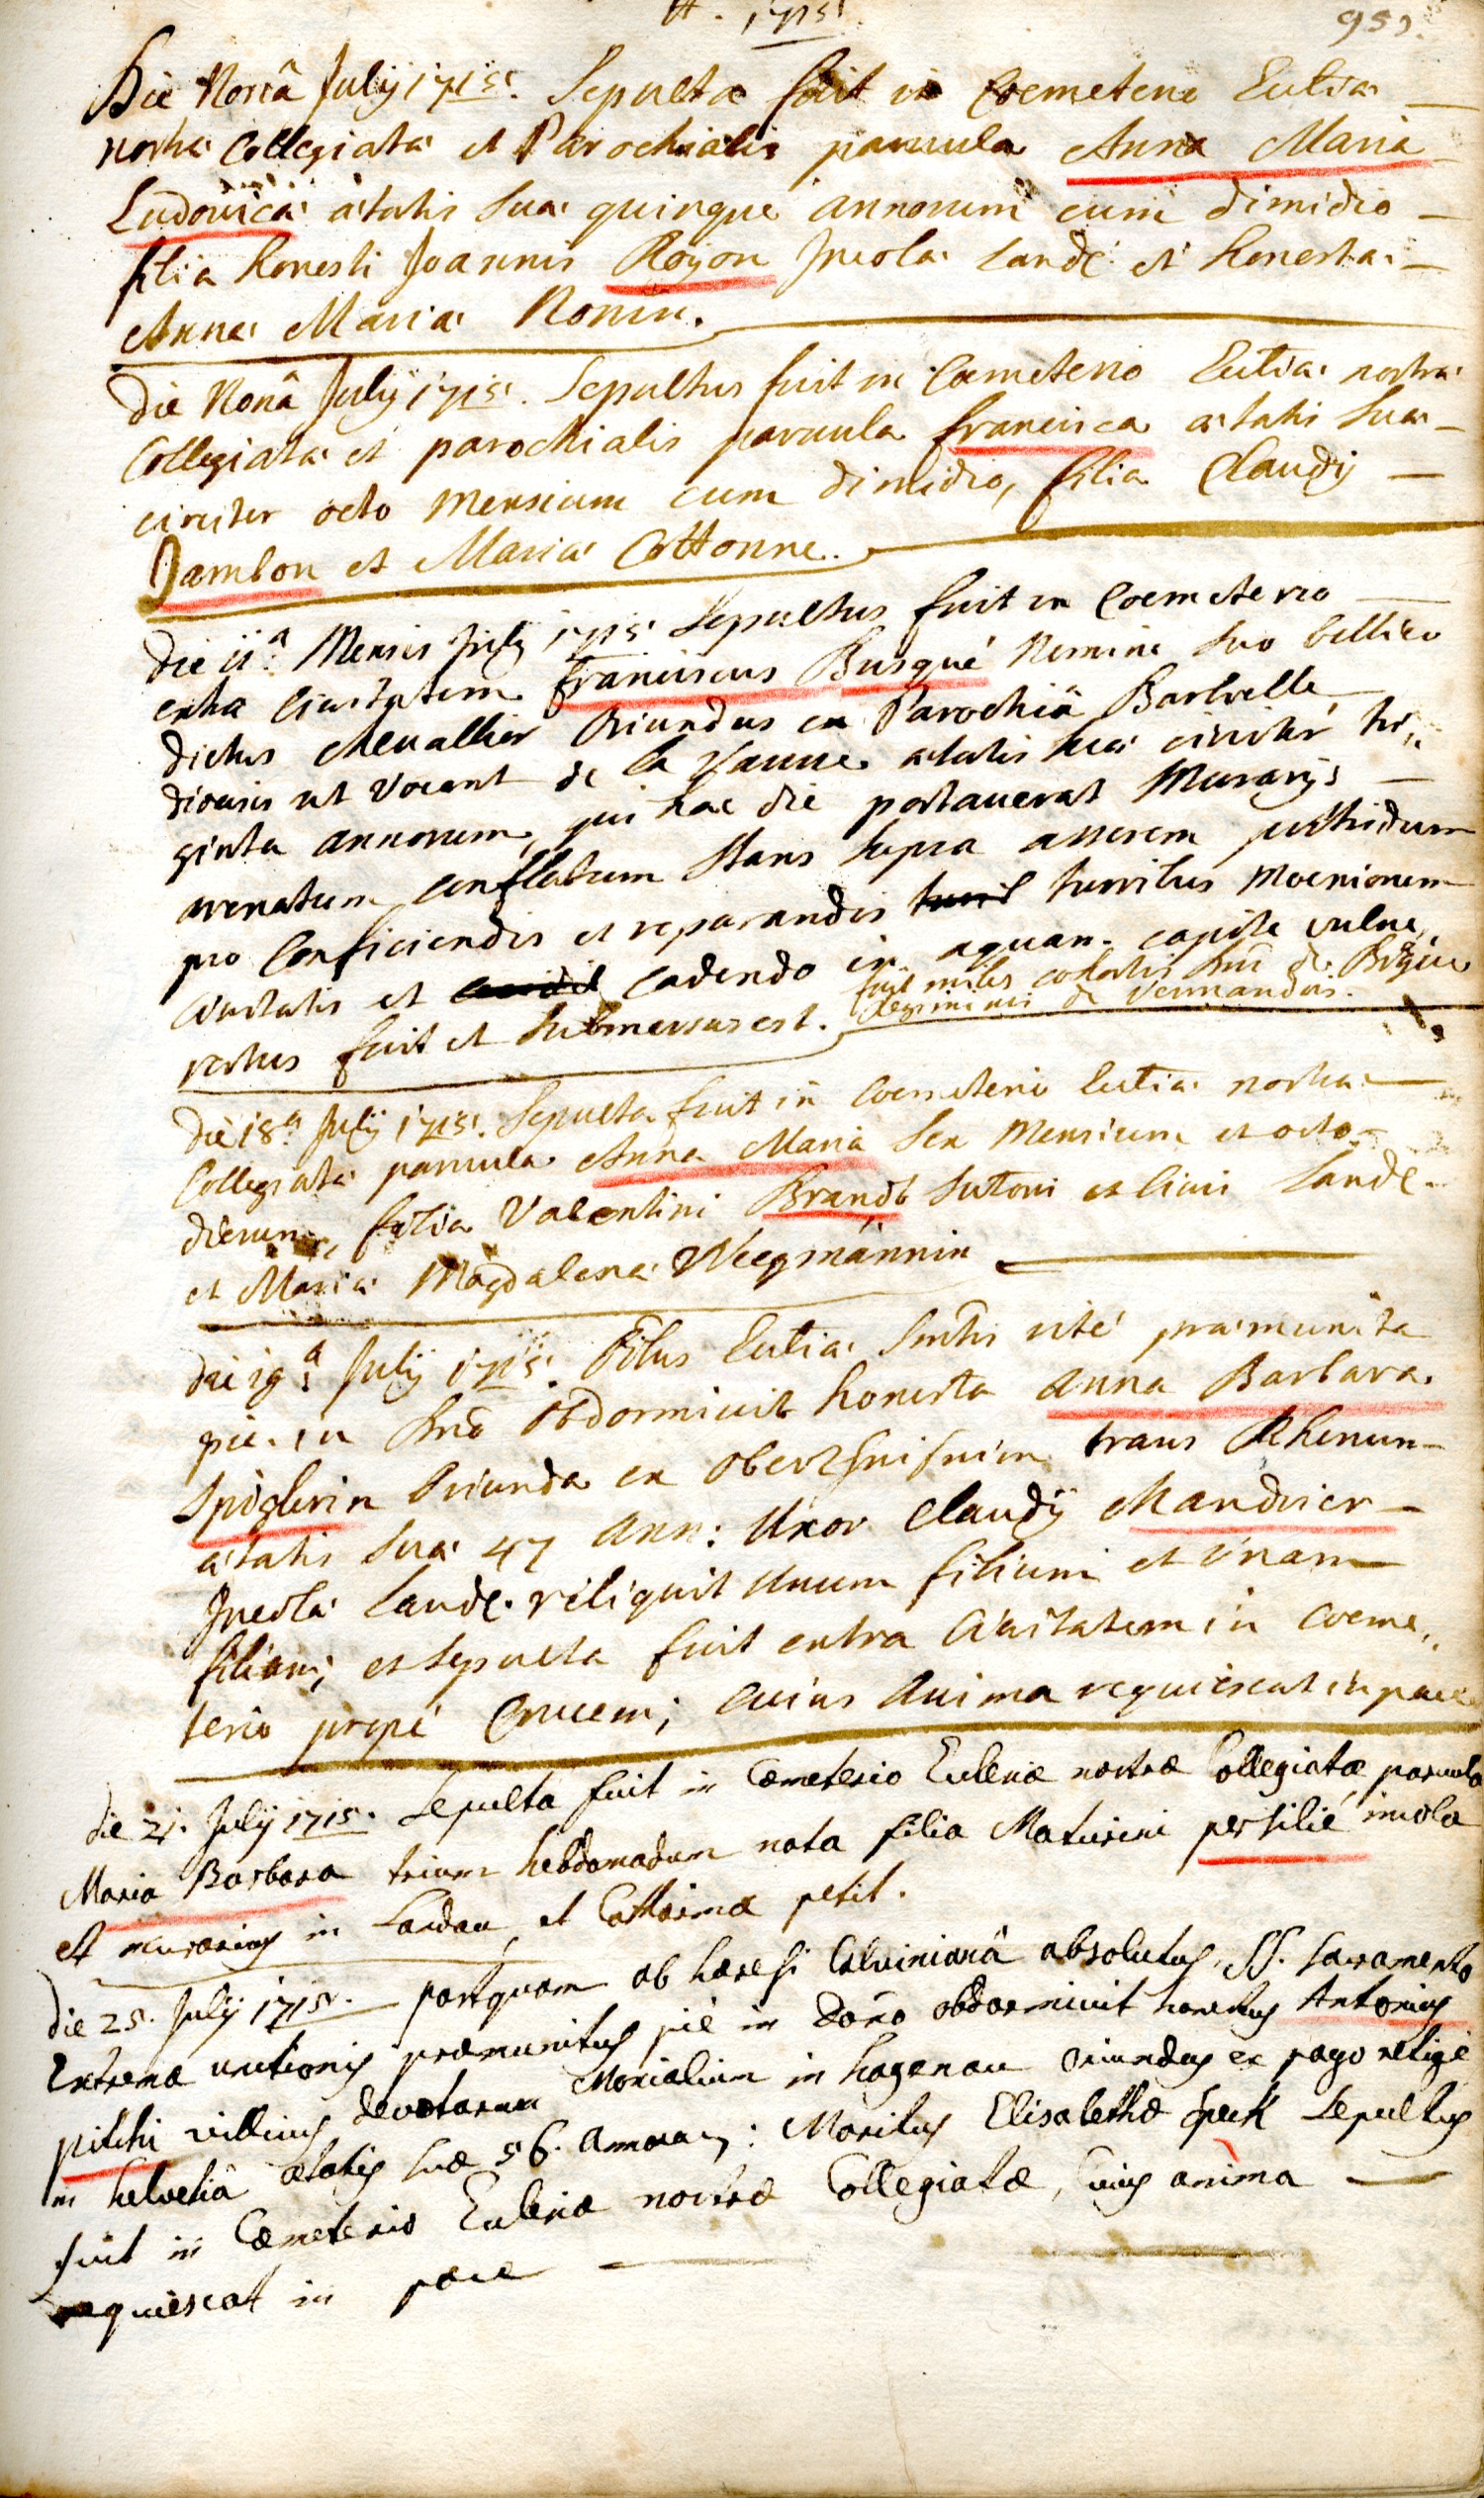 A. 1715.
953.
Die Nonâ Julÿ 1715. Sepulta fuit in Coemeterio Eccliæ
nostræ Collegiatæ et Parochialis paruula Anna Maria
Ludouica ætatis suæ quinque annorum cum dimidio
filia honesti Joannis Royon Incolæ Landę et honestæ
Annæ Mariæ Nonin.
Die Nonâ Julÿ 1715. Sepultus fuit in Coemeterio Eccliæ nostræ
Collegiatæ et parochialis paruula francisca ætatis suæ
circiter octo Mensium cum dimidio, filia Claudÿ
Jambon et Mariæ Cottonne.
Die 11.a Mensis Julÿ 1715 Sepultus fuit in Coemeterio
extra Ciuitatem franciscus Busqué Nomine suo bellico
dictus chevallier Oriundus ex Parochiâ Barbvelle
diocesis ut vocant de la Vaune ætatis suæ circiter tri,,
ginta annorum, qui hac die portauerat Murarÿs
arenatum conflatum stans supra asserem putridum
pro Conficiendis et reparandis turribus Moenionem
Ciuitatis et cadendo in aquam capite vulne,,
ratus fuit et submersus est. fuit miles cohortis Dni de
Regiminis de Vermandois.
Die 18.a Julÿ 1715. Sepulta fuit in Coemeterio Eccliæ nostræ
Collegiatæ paruula Anna Maria sex Mensium et octo
dierum, filia Valentini Brandt Sutoris et Ciuis Landę
et Mariæ Magdalenæ Weegmännin
Die 19.a Julÿ 1715. Eccliæ rité præmunita
pie in Dnô Obdormiuit honesta Anna Barbara
Spiglerin Oriunda ex trans Rhenum
ætatis suæ 47 ann: Uxor Claudÿ Mandrier
Incolæ Landę. reliquit Unum filium et Unam
filiam; et sepulta fuit extra Ciuitatem in Coeme,,
terio propè Crucem; cuius Anima requiescat in pace
die 21. Julÿ 1715. Sepulta fuit in Cæmeterio Ecclesiæ nostræ Collegiatæ paruula
Maria Barbara trium hebdomadum nata filia Maturini persilié incola
et murarius in Landau et Catharinæ petit.
Die 25. Julÿ 1715. postquam ab hæresi Calvinianâ absolutus, SS. Sacramento
Extremæ unctionis præmunitus piè in Domo obdormiuit honestus Antonius
pitchi villicus devotarum Monialium in hagenau oriundus ex pago
in helvetiâ ætatis suæ 56. annorum: Maritus Elisabethæ Speck Sepultus
fuit in Cæmeterio Ecclesiæ nostræ Collegiatæ, cuius anima
requiescat in pace